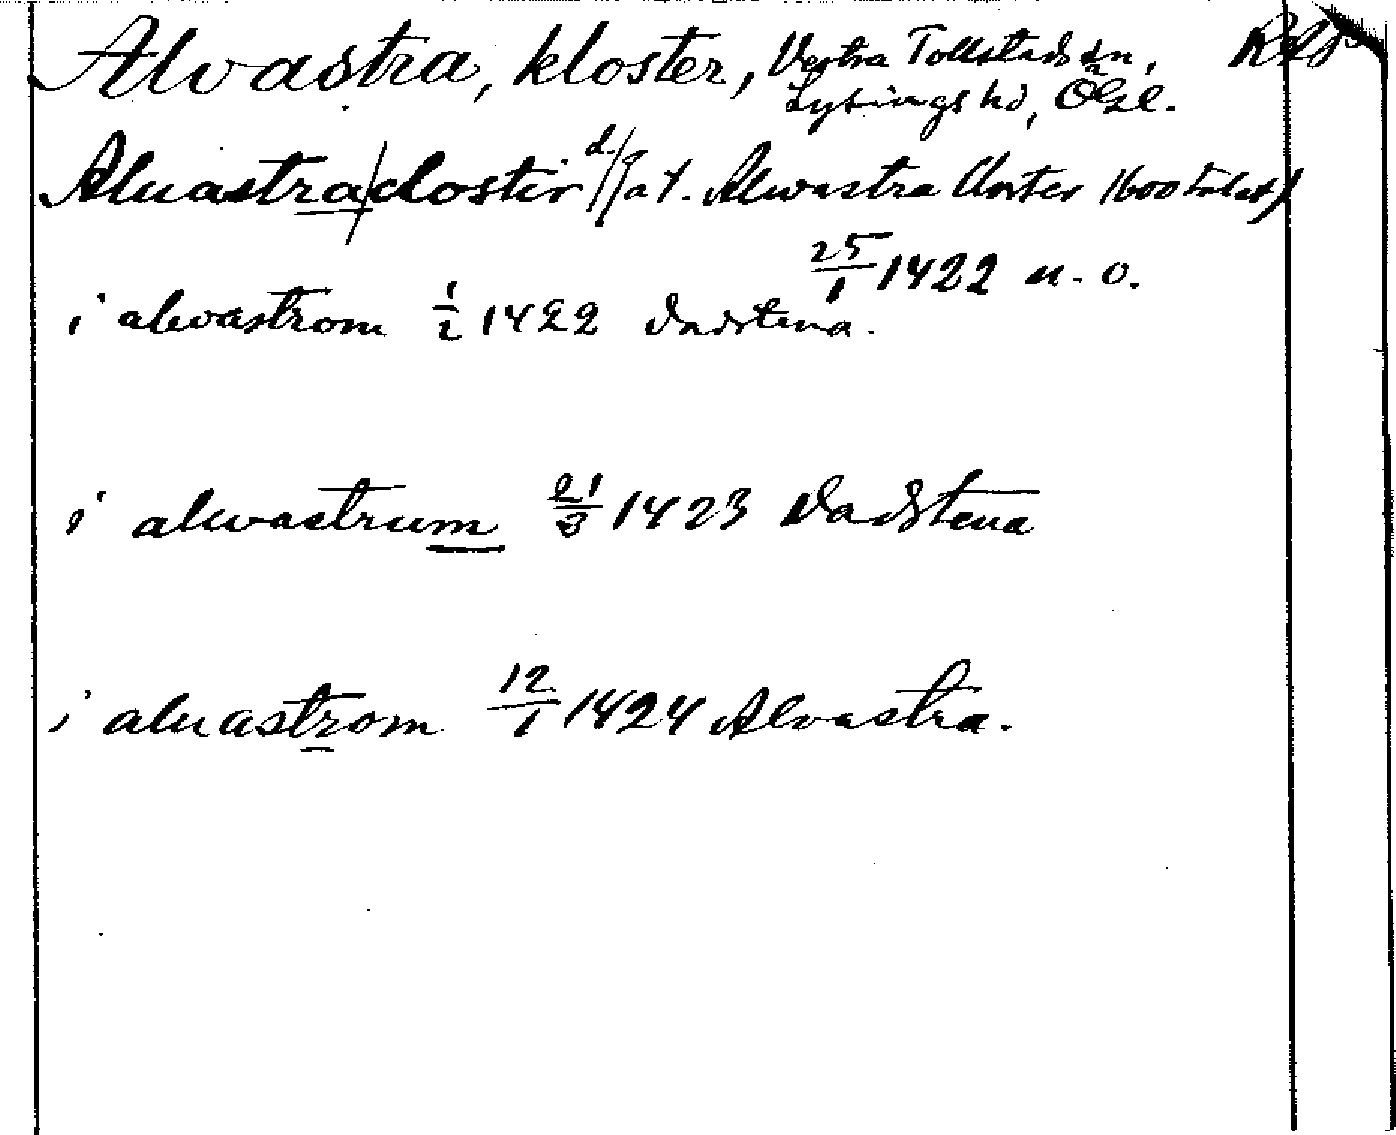 Alvastra, kloster, Vestra Tollstads sn, RAp
Lysings hd, Ögl.
Aluastra closter d. (at. Alwastra Closter 1600 talet)
25/1 1422 u. o.
i alwastrom 1/2 1422 Vadstena.
i alwastrum 21/3 1423 Vadstena
i aluastrom 12/1 1424 Alvastra.